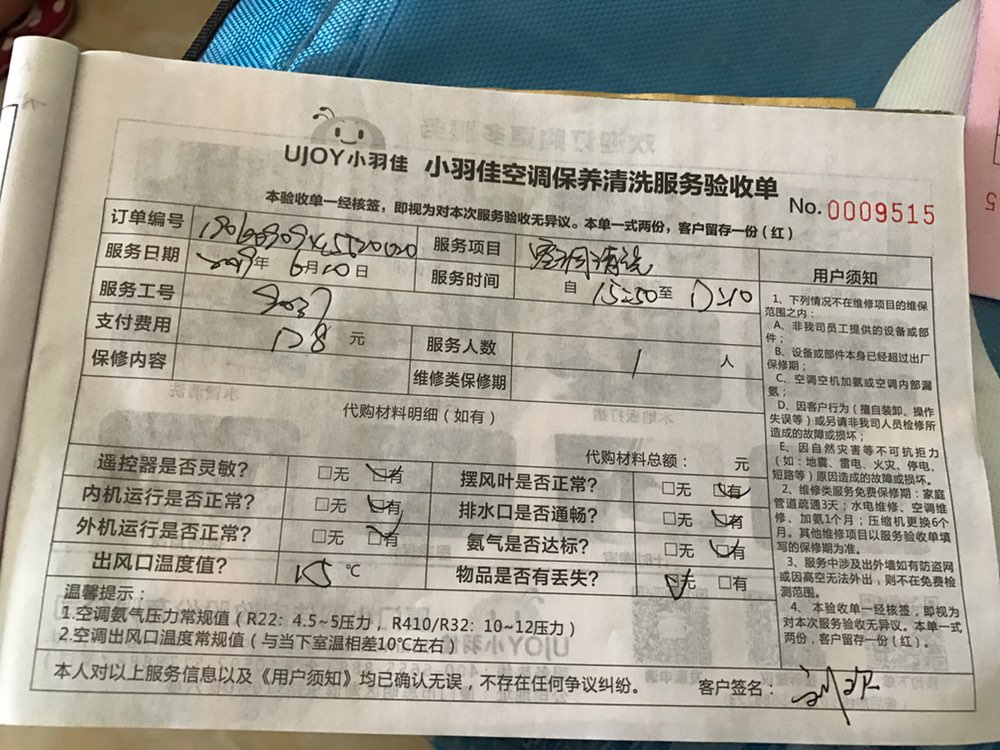 UJOY小羽佳 小羽佳空调保养清洗服务验收单
No. 0009515
本验收单一经核签，即视为对本次服务验收无异议。本单一式两份，客户留存一份（红）
订单编号 服务项目 空调清洗
服务日期 2019年 6月20日 服务时间 自 15:50至
服务工号 9037
支付费用 128 元 服务人数 1 人
保修内容 维修类保修期
代购材料明细（如有）
代购材料总额： 元
遥控器是否灵敏？ □无 □有 摆风叶是否正常？ □无 □有
内机运行是否正常？ □无 □有 排水口是否通畅？ □无 □有
外机运行是否正常？ □无 □有 氨气是否达标？ □无 □有
出风口温度值？ 15 ℃ 物品是否有丢失？ □无 □有
温馨提示：
1.空调氨气压力常规值（R22：4.5~5压力，R410/R32：10~12压力）
2.空调出风口温度常规值（与当下室温相差10℃左右）
本人对以上服务信息以及《用户须知》均已确认无误，不存在任何争议纠纷。 客户签名：
用户须知
1、下列情况不在维修项目的维保
范围之内：
A、非我司员工提供的设备或部
件；
B、设备或部件本身已经超过出厂
保修期；
C、空调空机加氨或空调内部漏
氨；
D、因客户行为（擅自装卸、操作
失误等）或另请非我司人员检修所
造成的故障或损坏；
E、因自然灾害等不可抗拒力
（如：地震、雷电、火灾、停电、
短路等）原因造成的故障或损坏。
2、维修类服务免费保修期：家庭
管道疏通3天；水电维修、空调维
修、加氨1个月；压缩机更换6个
月。其他维修项目以服务验收单填
写的保修期为准。
3、服务中涉及出外墙如有防盗网
或因高空无法外出，则不在免费检
测范围。
4、本验收单一经核签，即视为
对本次服务验收无异议。本单一式
两份，客户留存一份（红）。